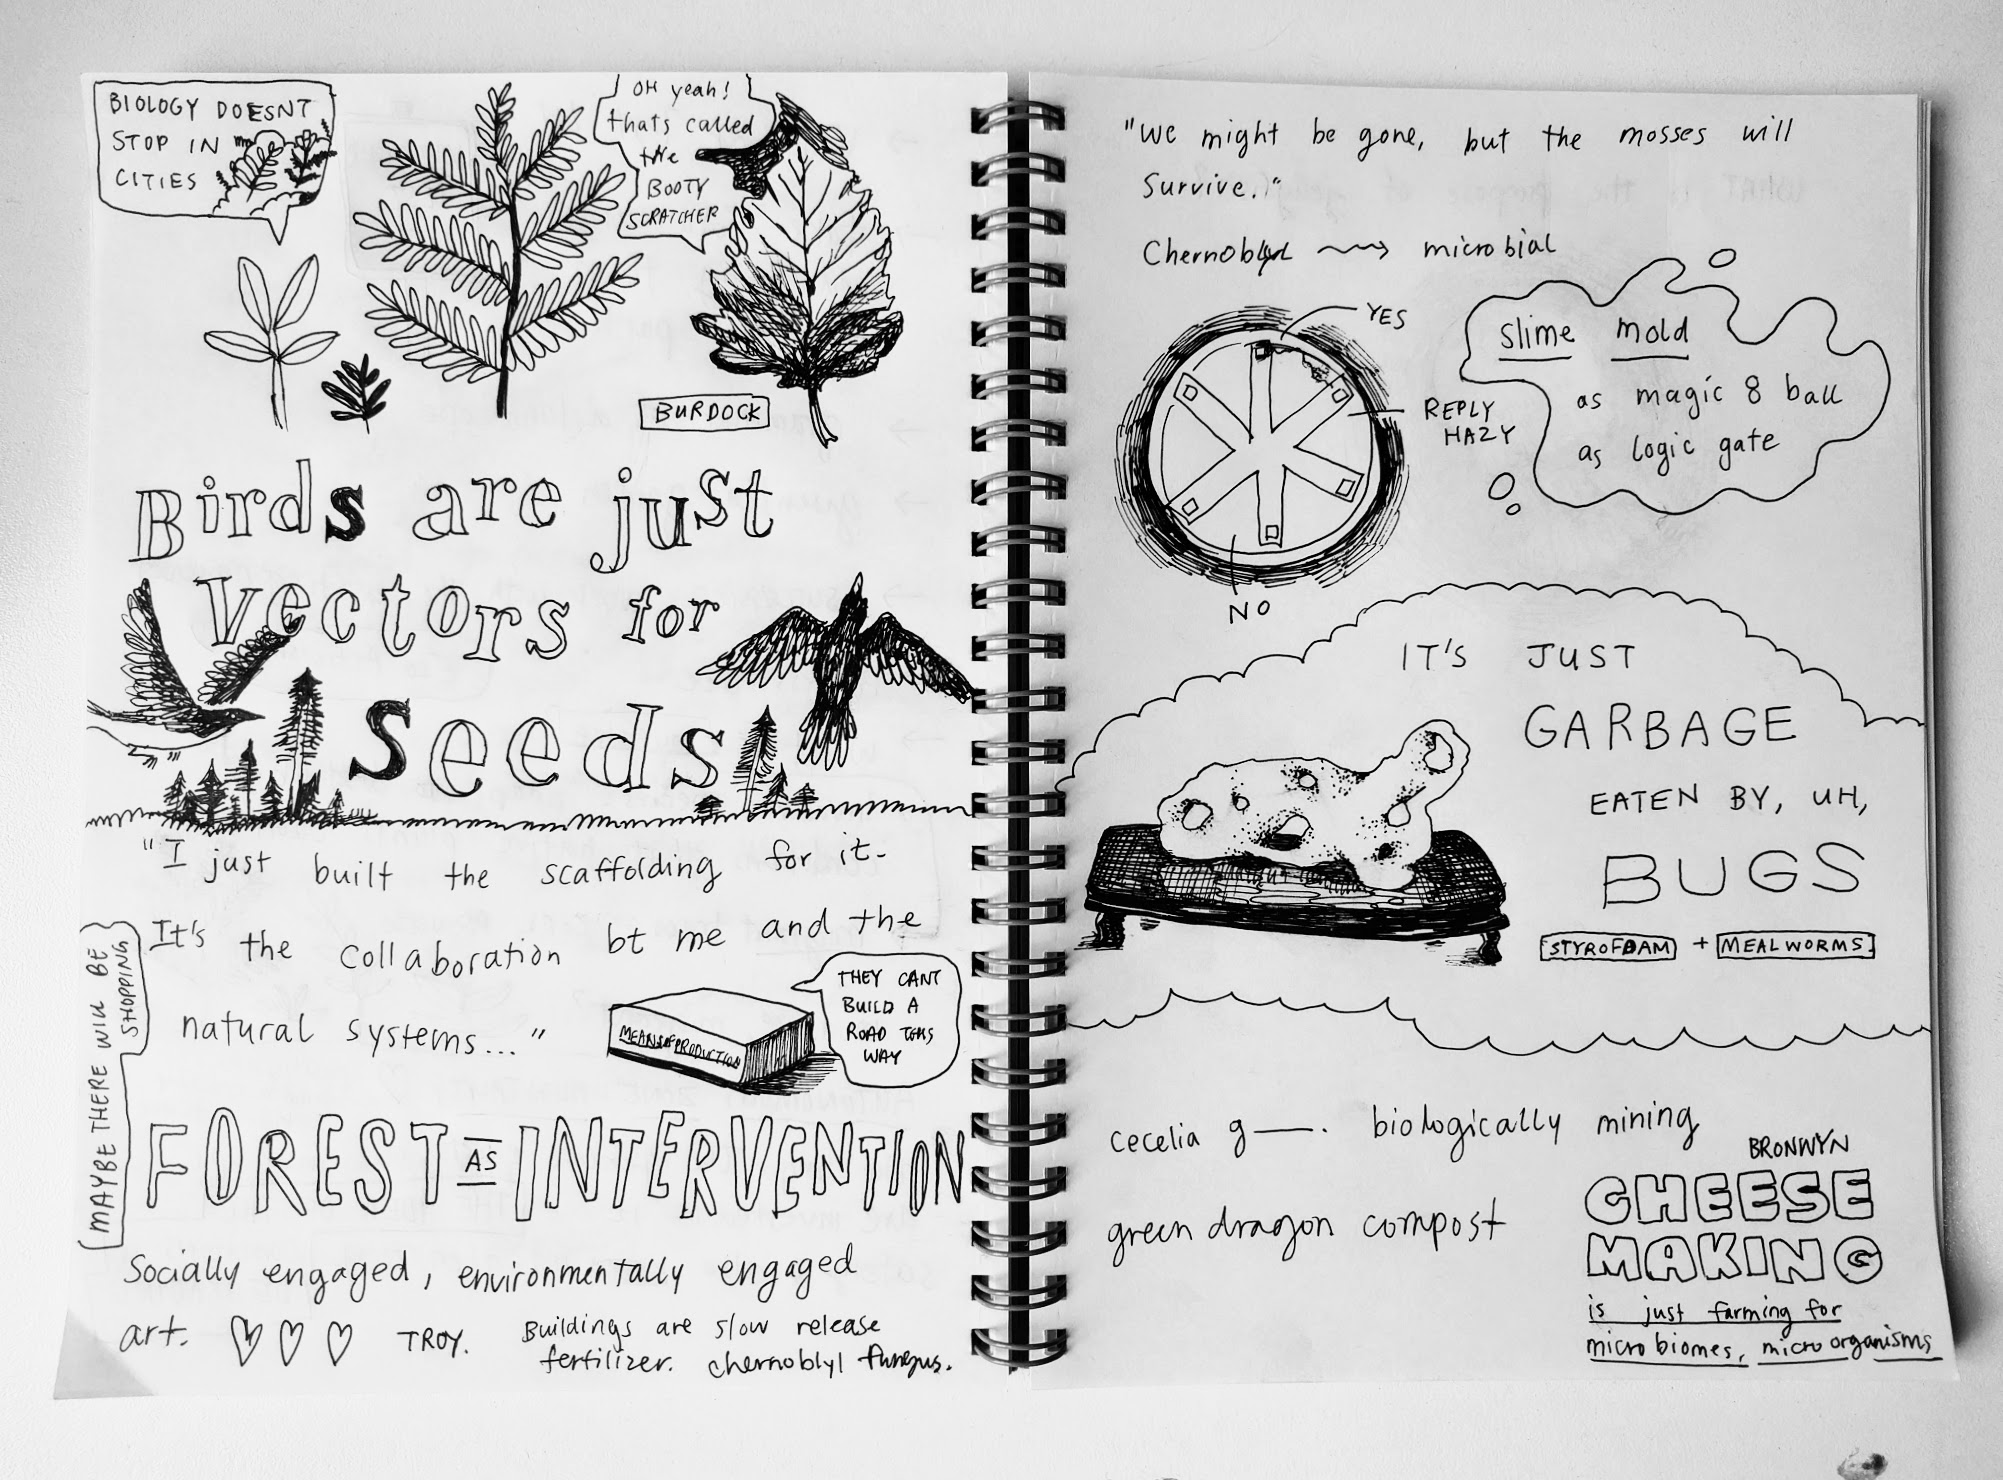 BIOLOGY DOESNT
STOP IN
CITIES
OH yeah!
thats called
the
BOOTY
SCRATCHER
BURDOCK
Birds are just
vectors for
seeds
"I just built the scaffolding for it-
It's the collaboration bt me and the
natural systems..."
MAYBE THERE WILL BE
SHOPPING
MEANS OF PRODUCTION
THEY CANT
BUILD A
ROAD THIS
WAY
FOREST AS INTERVENTION
Socially engaged, environmentally engaged
art. ♡ ♡ ♡ TROY.
Buildings are slow release
fertilizer. chernoblyl fungus.
"We might be gone, but the mosses will
Survive."
microbial
YES
REPLY
HAZY
NO
slime mold
as magic 8 ball
as logic gate
IT'S JUST
GARBAGE
EATEN BY, UH,
BUGS
STYROFOAM + MEALWORMS
cecelia g—. biologically mining
green dragon compost
BRONWYN
CHEESE
MAKING
is just farming for
microbiomes, microorganisms